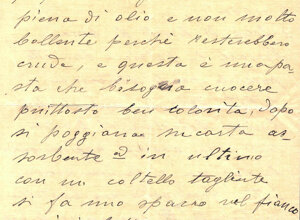 piena di olio e non molto
bollente perchè resterebbero
crude, e questa è una pa-
sta che bisogna cuocere
piuttosto ben colorita, dopo
si poggiano in carta as-
sorbente ed in ultimo
con un coltello tagliente
si fa uno spacco nel fianco